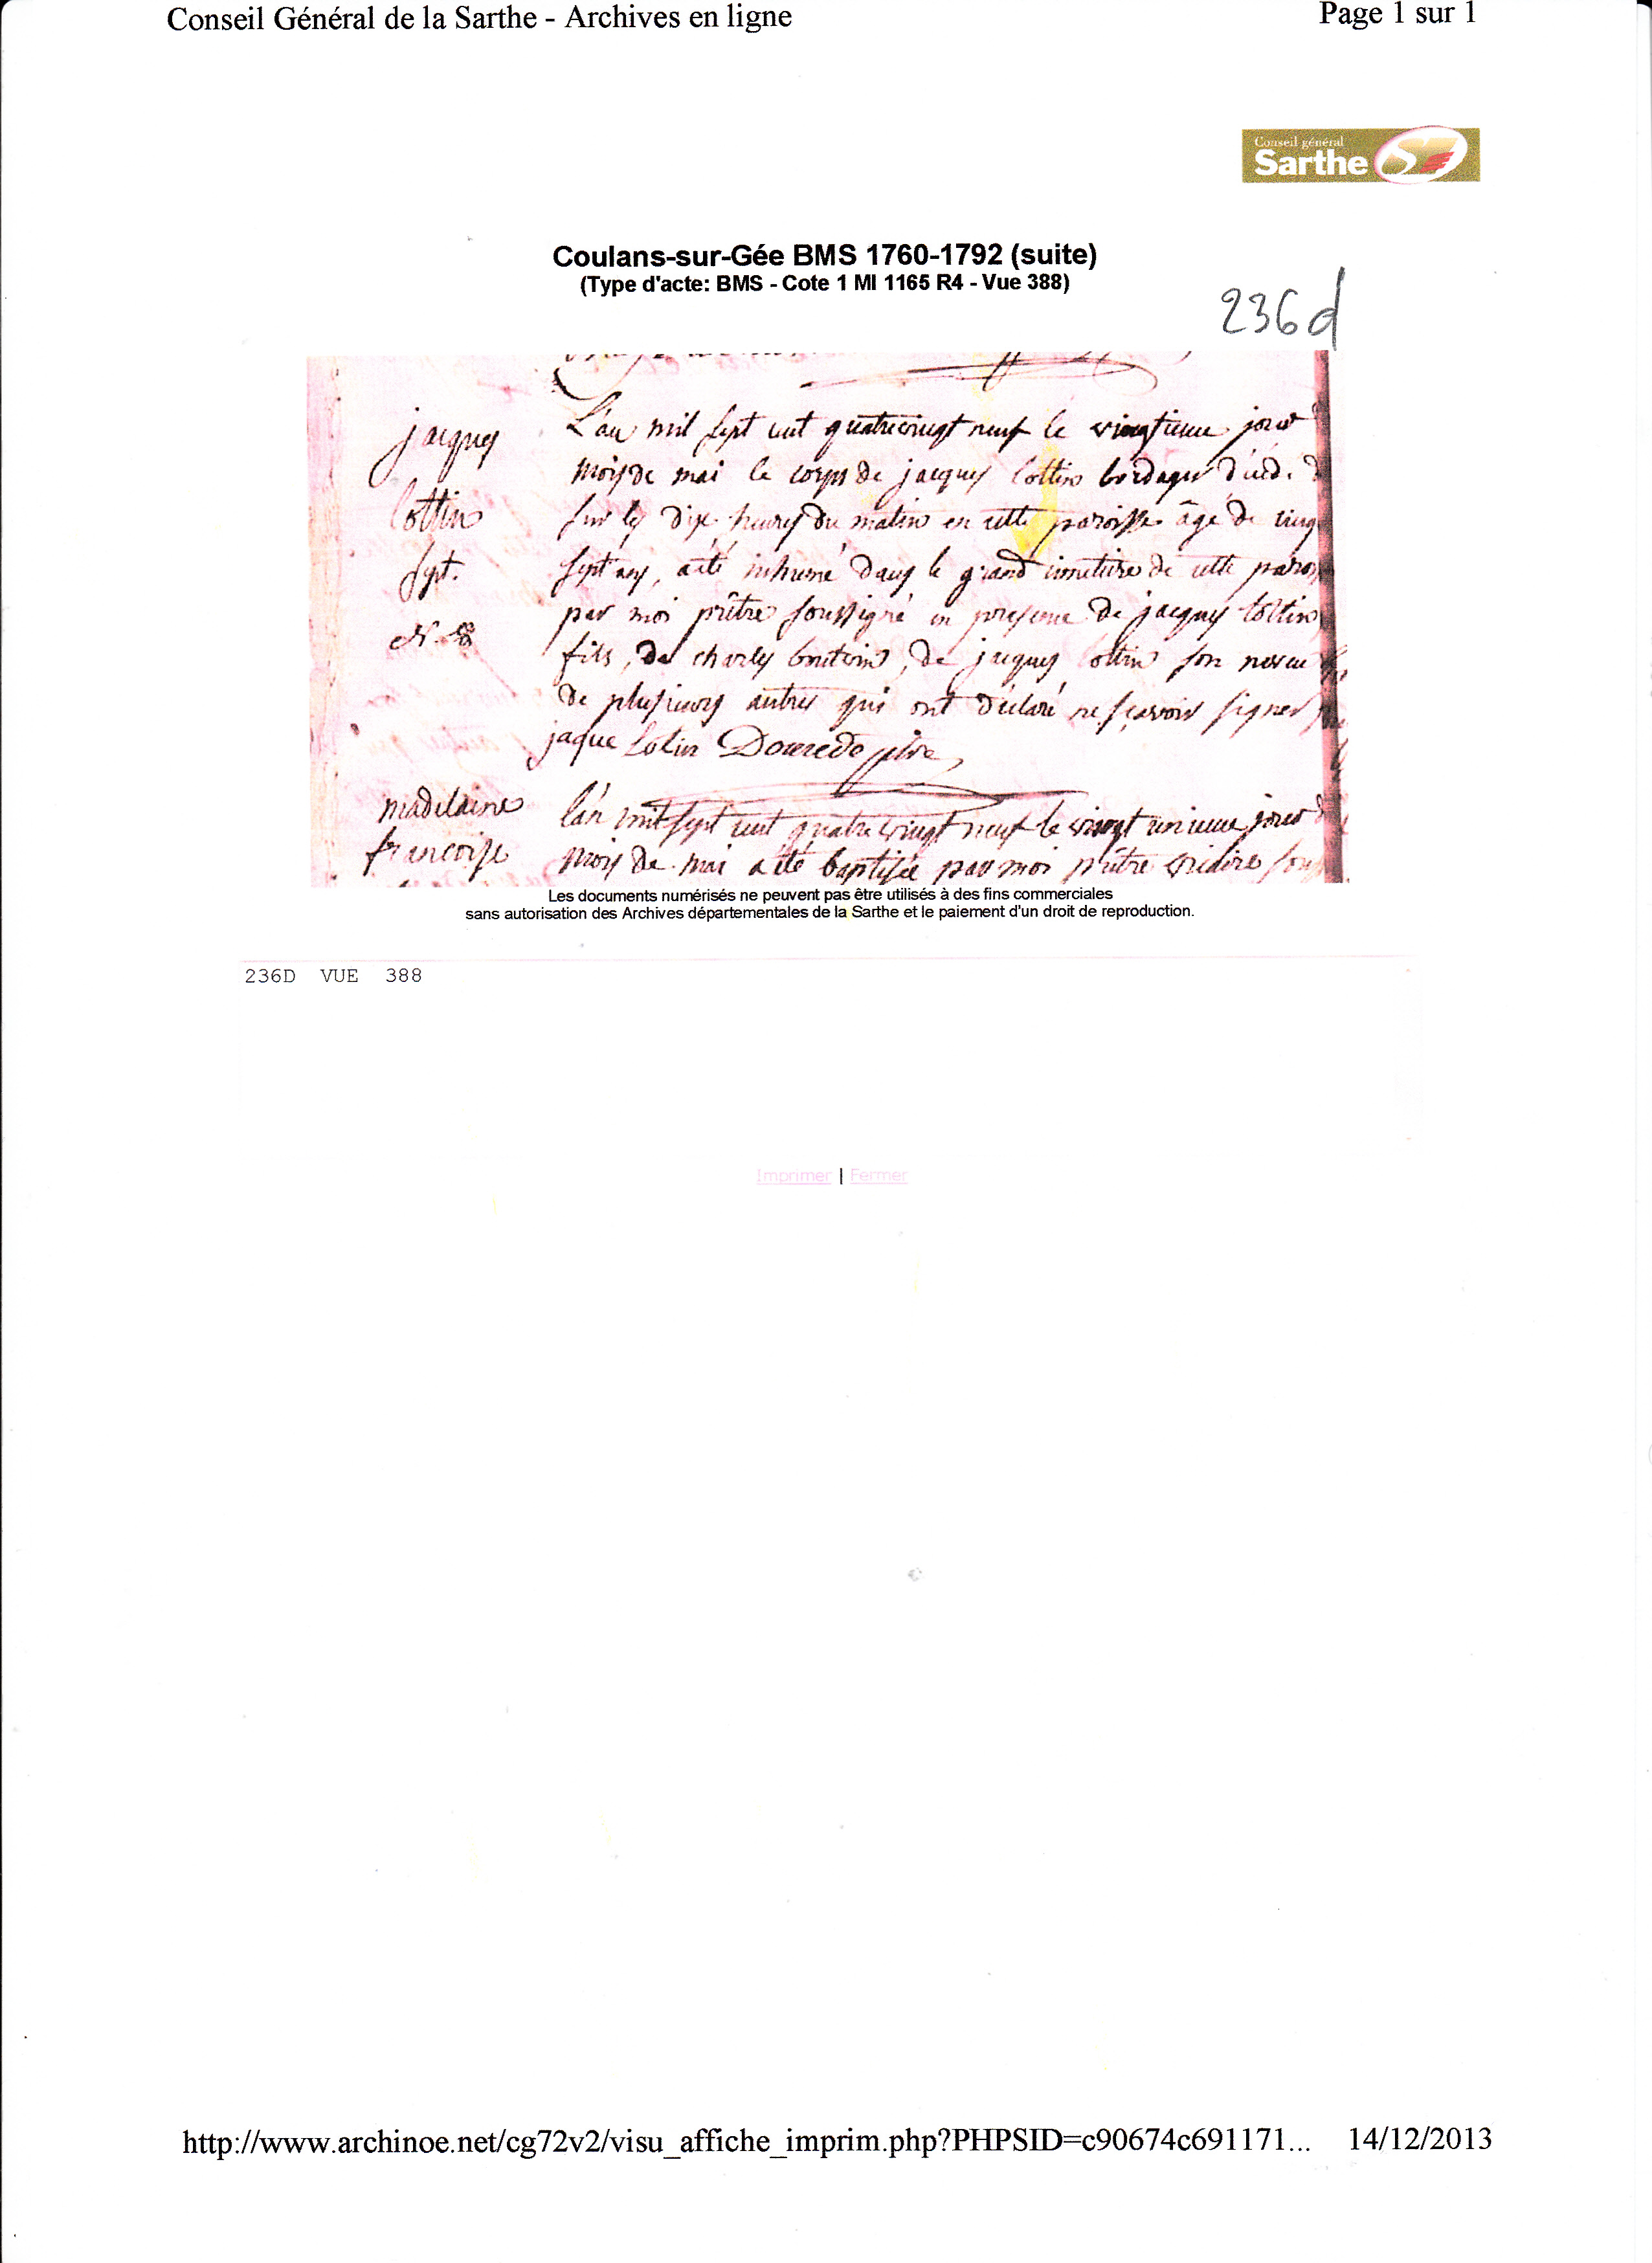 Conseil Général de la Sarthe - Archives en ligne
Page 1 sur 1
Conseil général
Sarthe
Coulans-sur-Gée BMS 1760-1792 (suite)
(Type d'acte: BMS - Cote 1 MI 1165 R4 - Vue 388)
236d
jacques
lottin
sept.
L'an mil sept cent quatrevingt neuf le vingtieme jour
mois de mai le corps de jacques lottin bordager décéd.
sur les dix heures du matin en cette paroisse âgé de
sept ans, a été inhumé dans le grand cimetiere de cette
par moi prêtre soussigné en presence de jacques lottin
fils, de charles de jacques lottin son neveu
de plusieurs autres qui ont déclaré ne sçavoir signer
jaque Lotin ptre
madelaine
francoise
l'an mil sept cent quatrevingt neuf le vingt unieme jour
mois de mai a été baptisée par moi prêtre vicaire
Les documents numérisés ne peuvent pas être utilisés à des fins commerciales
sans autorisation des Archives départementales de la Sarthe et le paiement d'un droit de reproduction.
236D VUE 388
Imprimer | Fermer
http://www.archinoe.net/cg72v2/visu_affiche_imprim.php?PHPSID=c90674c691171...
14/12/2013